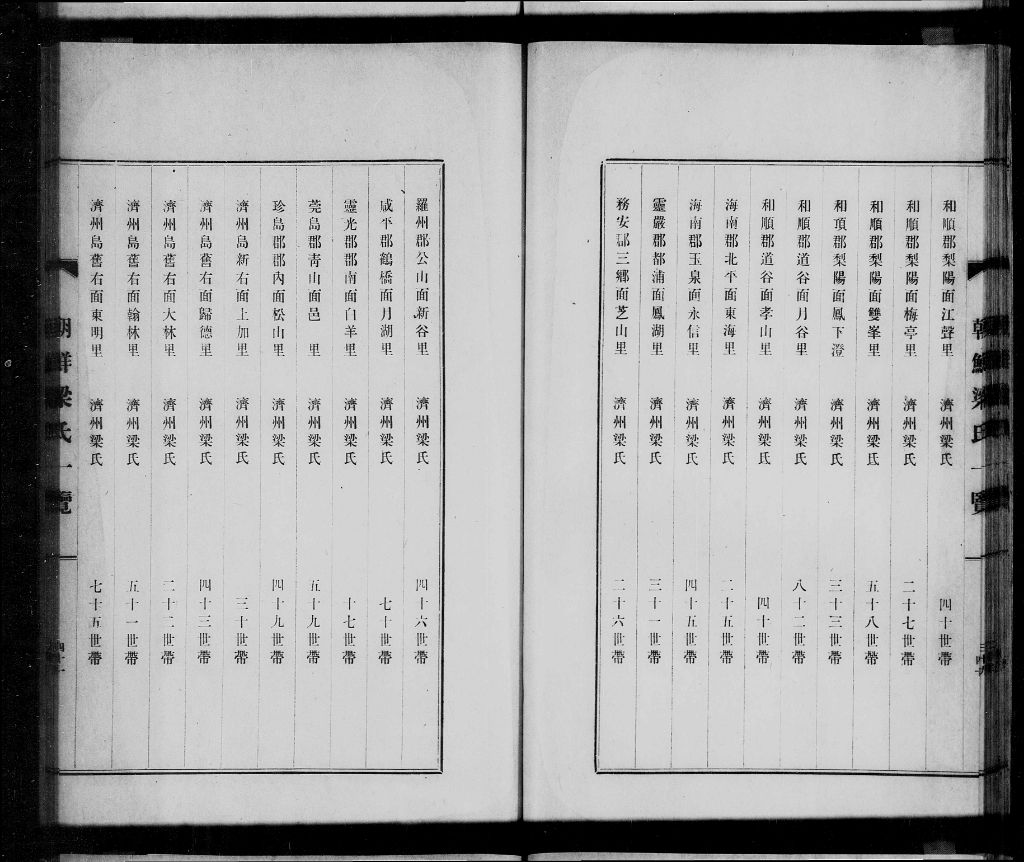 和順郡梨陽面江聲里 濟州梁氏 四十世帶
和順郡梨陽面梅亭里 濟州梁氏 二十七世帶
和順郡梨陽面雙峯里 濟州梁氏 五十八世帶
和順郡梨陽面鳳下澄 濟州梁氏 三十三世帶
和順郡道谷面月谷里 濟州梁氏 八十二世帶
和順郡道谷面孝山里 濟州梁氏 四十世帶
海南郡北平面東海里 濟州梁氏 二十五世帶
海南郡玉泉面永信里 濟州梁氏 四十五世帶
靈嚴郡都浦面鳳湖里 濟州梁氏 三十一世帶
務安郡三鄉面芝山里 濟州梁氏 二十六世帶
羅州郡公山面新谷里 濟州梁氏 四十六世帶
咸平郡鶴橋面月湖里 濟州梁氏 七十世帶
靈光郡郡南面白羊里 濟州梁氏 十七世帶
莞島郡靑山面邑里 濟州梁氏 五十九世帶
珍島郡郡內面松山里 濟州梁氏 四十九世帶
濟州島新右面上加里 濟州梁氏 三十世帶
濟州島舊右面歸德里 濟州梁氏 四十三世帶
濟州島舊右面大林里 濟州梁氏 二十二世帶
濟州島舊右面翰林里 濟州梁氏 五十一世帶
濟州島舊右面東明里 濟州梁氏 七十五世帶
朝鮮梁氏一覽